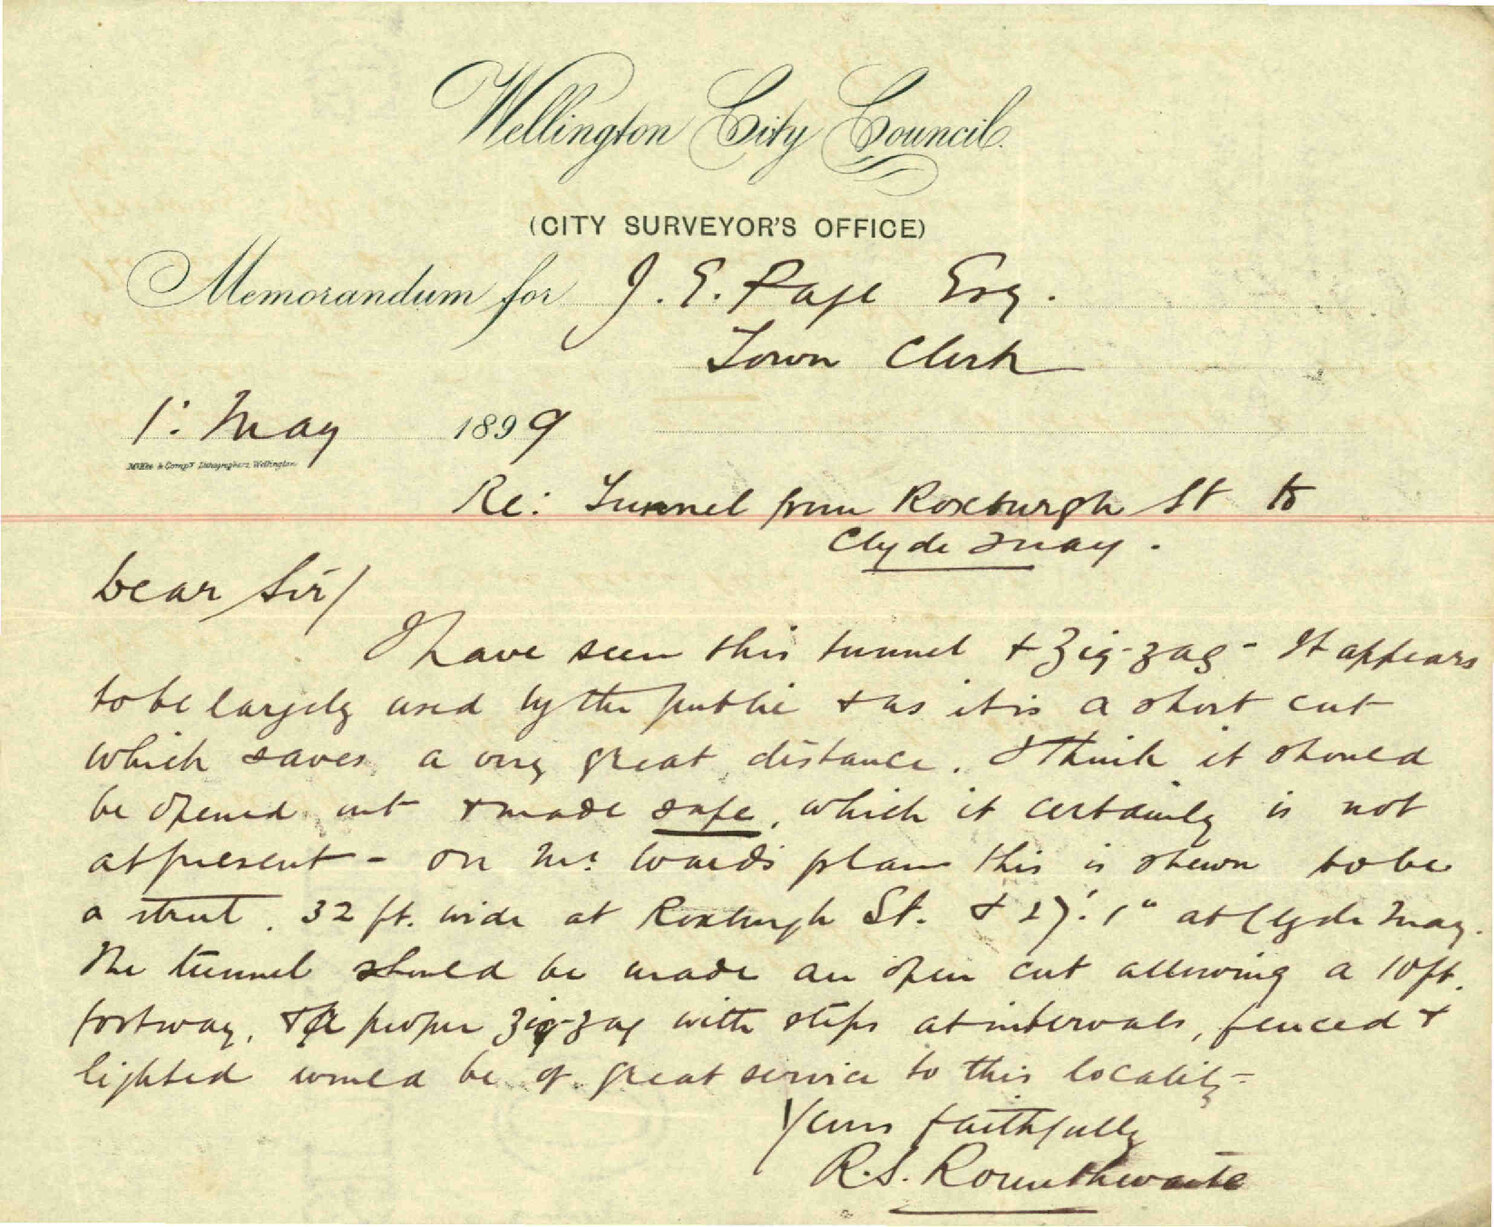 Wellington City Council.
(CITY SURVEYOR'S OFFICE)
Memorandum for J. E. Page Esq.
Town Clerk
1: May 1899
McKee & Compy Lithographers Wellington
Re: Tunnel from Roxburgh St to
Clyde Quay.
Dear Sir/
I have seen this tunnel & zig-zag - It appears
to be largely used by the public & as it is a short cut
which saves a very great distance. I think it should
be opened out & made safe, which it certainly is not
at present - On Mr. Ward's plan this is shewn to be
a street. 32 ft. wide at Roxburgh St. & 27' 1" at Clyde Quay.
The tunnel should be made an open cut allowing a 10 ft.
footway. & a proper zig-zag with steps at intervals, fenced &
lighted would be of great service to this locality -
Yours faithfully
R. S. Rounthwaite